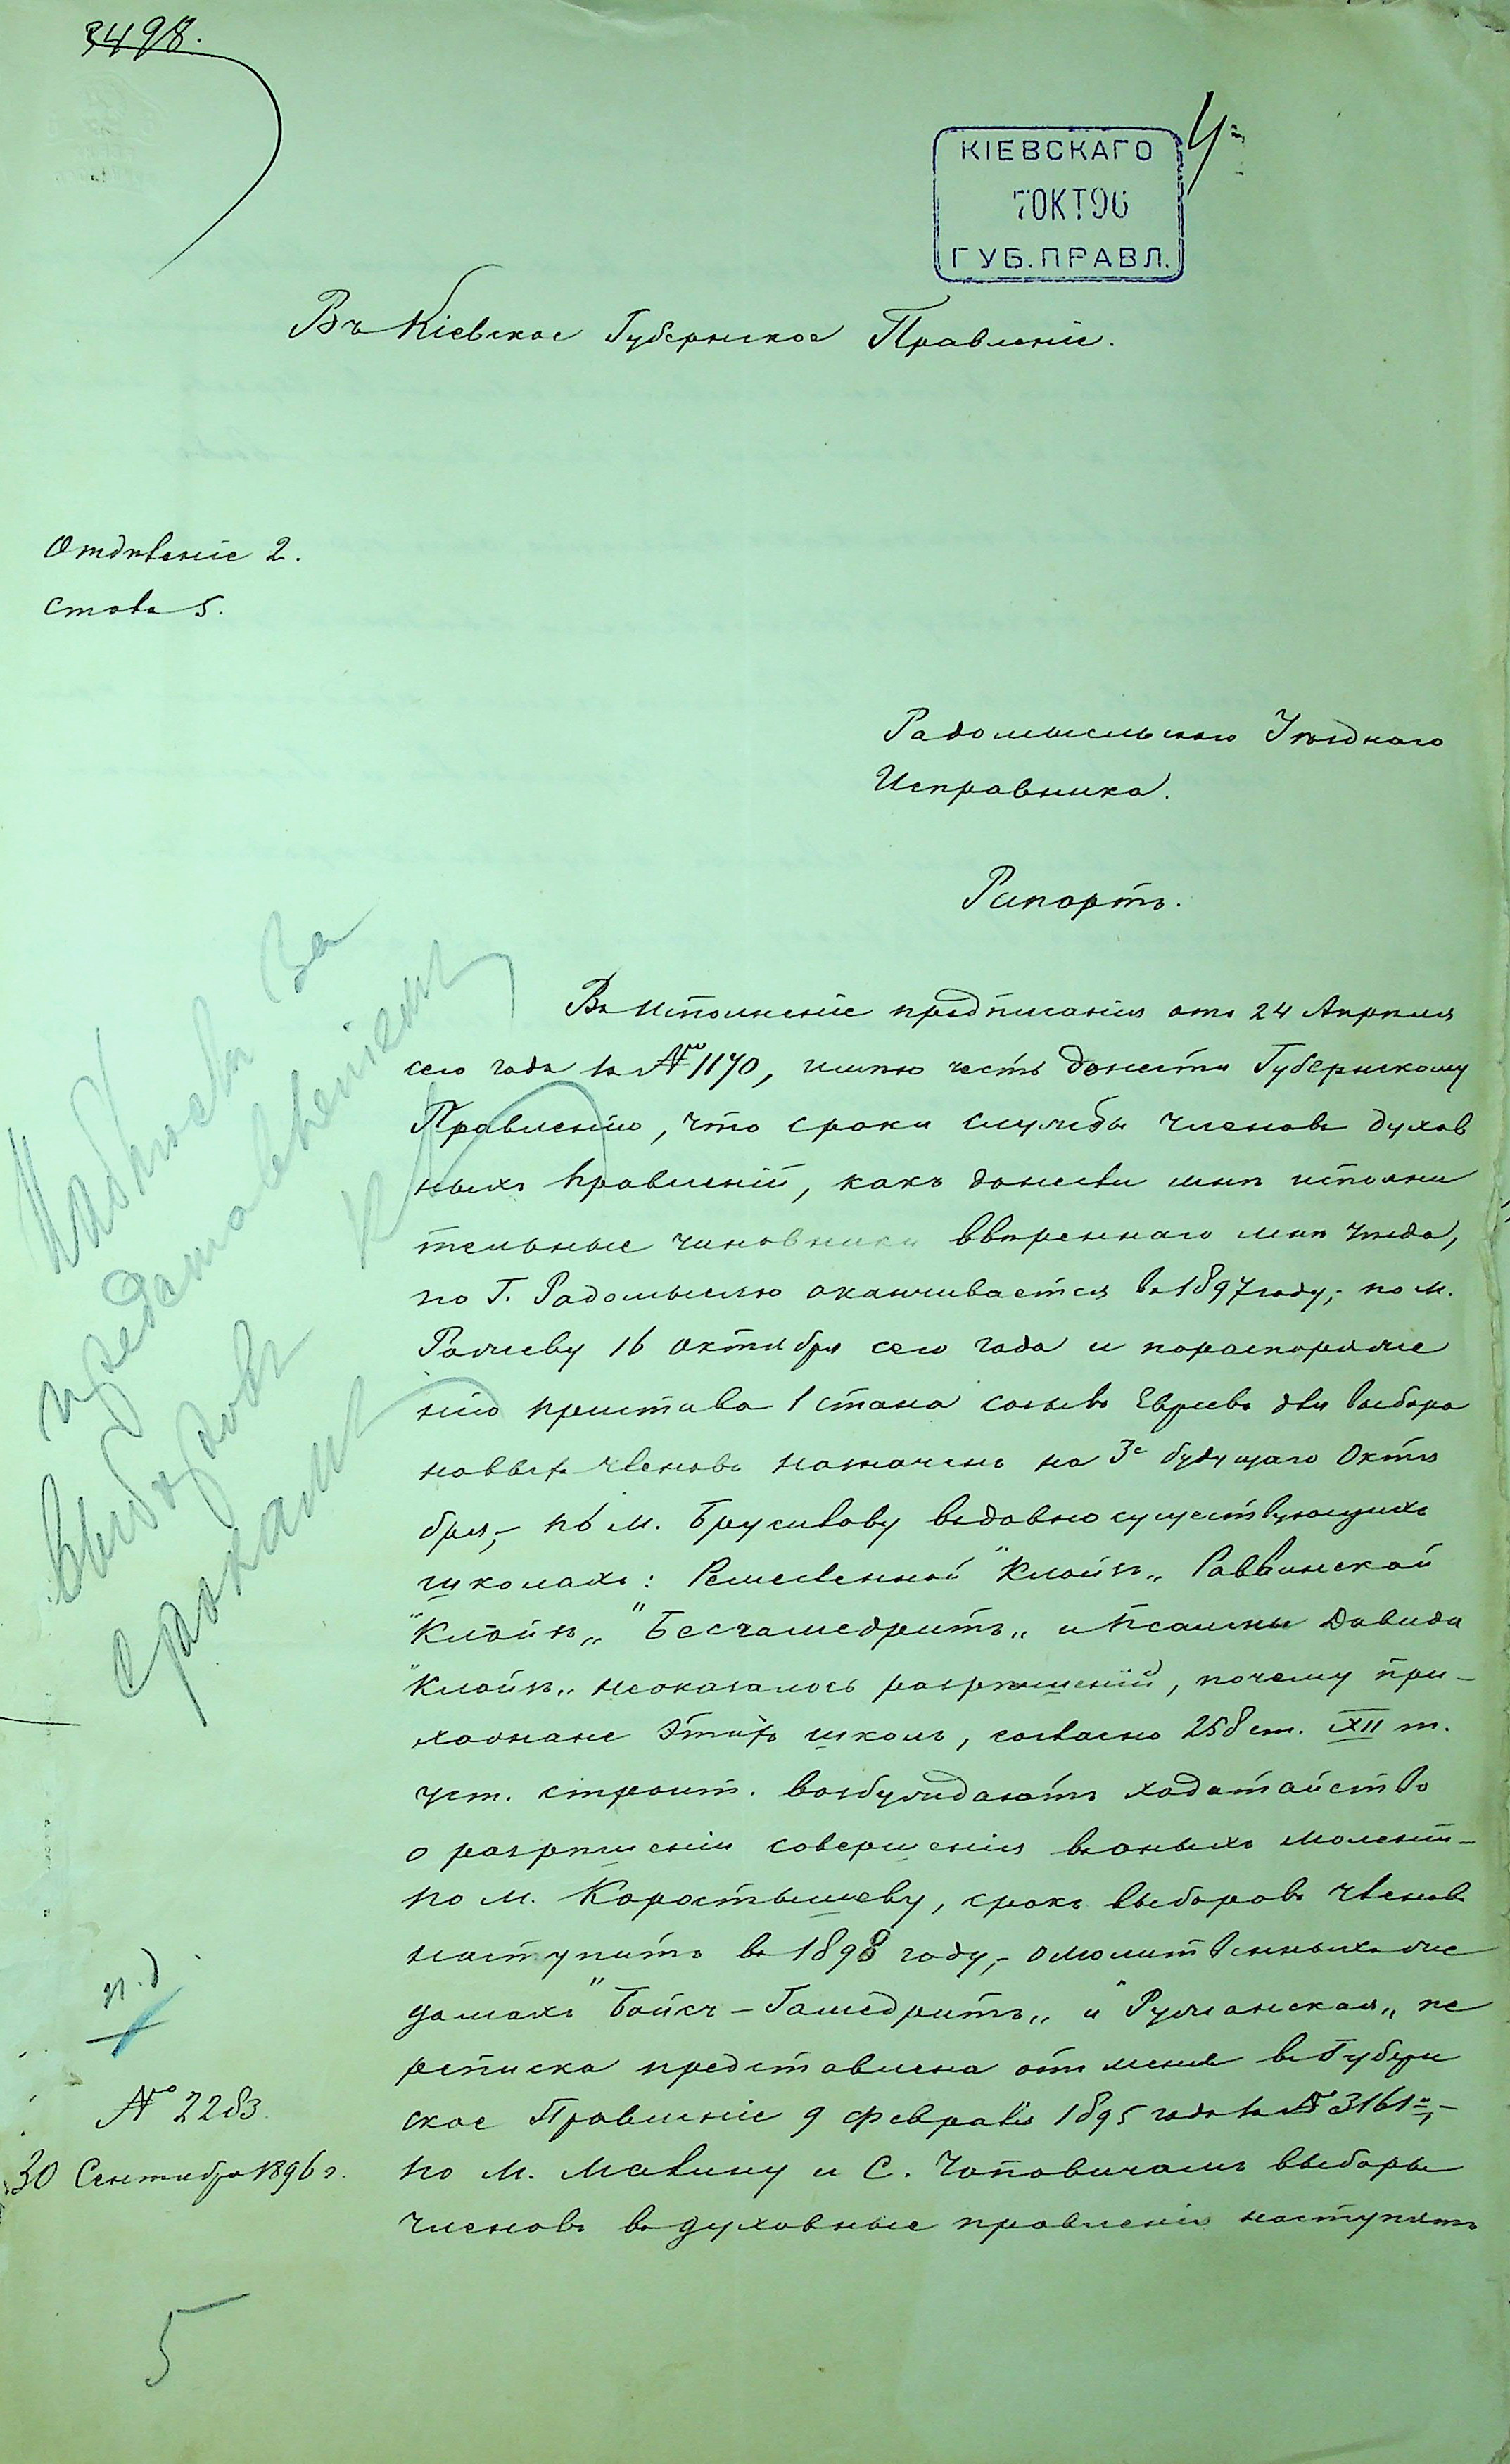 3498.
4
КІЕВСКАГО
7 ОКТ 96
ГУБ. ПРАВЛ.
Въ Кіевское Губернское Правленіе.
Отдѣленіе 2.
Столъ 5.
Радомысльскаго Уѣзднаго
Исправника.
Рапортъ.
Во исполненіе предписанія отъ 24 Апрѣля
сего года за № 1170, имѣю честь донести Губернскому
Правленію, что сроки службы членовъ духов
ныхъ правленій, какъ донесли мнѣ исполни
тельные чиновники ввѣреннаго мнѣ уѣзда,
по г. Радомыслю оканчивается въ 1897 году,- по м.
16 октября сего года и по распоряже
нію пристава 1 стана созывъ Евреевъ для выбора
новыхъ членовъ назначенъ на 3е будущаго Октя
бря,- по м. Брусилову въ давно существующихъ
школахъ: Ремесленной "Клойзъ„ Раввинской
"Клойзъ„ "Бесгамедритъ„ и Псалмы Давида
"Клойзъ„ не оказалось разрѣшеній, почему при-
хожане этихъ школъ, согласно 258 ст. XII т.
уст. строит. возбуждаютъ ходатайство
о разрѣшеніи совершенія въ оныхъ моленій-
по м. Коростышеву, срокъ выборовъ членовъ
наступитъ въ 1898 году,- о молитвенныхъ же
домахъ "Бойсъ-Гамедритъ„ и "Ружанская„ пе
реписка представлена отъ меня въ Губерн
ское Правленіе 9 февраля 1895 года за № 3161,-
по м. Малину и с. Чоповичамъ выборы
членовъ въ духовныя правленія наступятъ
Наблюсти за
представленіемъ
выборовъ
сроками
н.д
№ 2283
30 Сентября 1896 г.
5